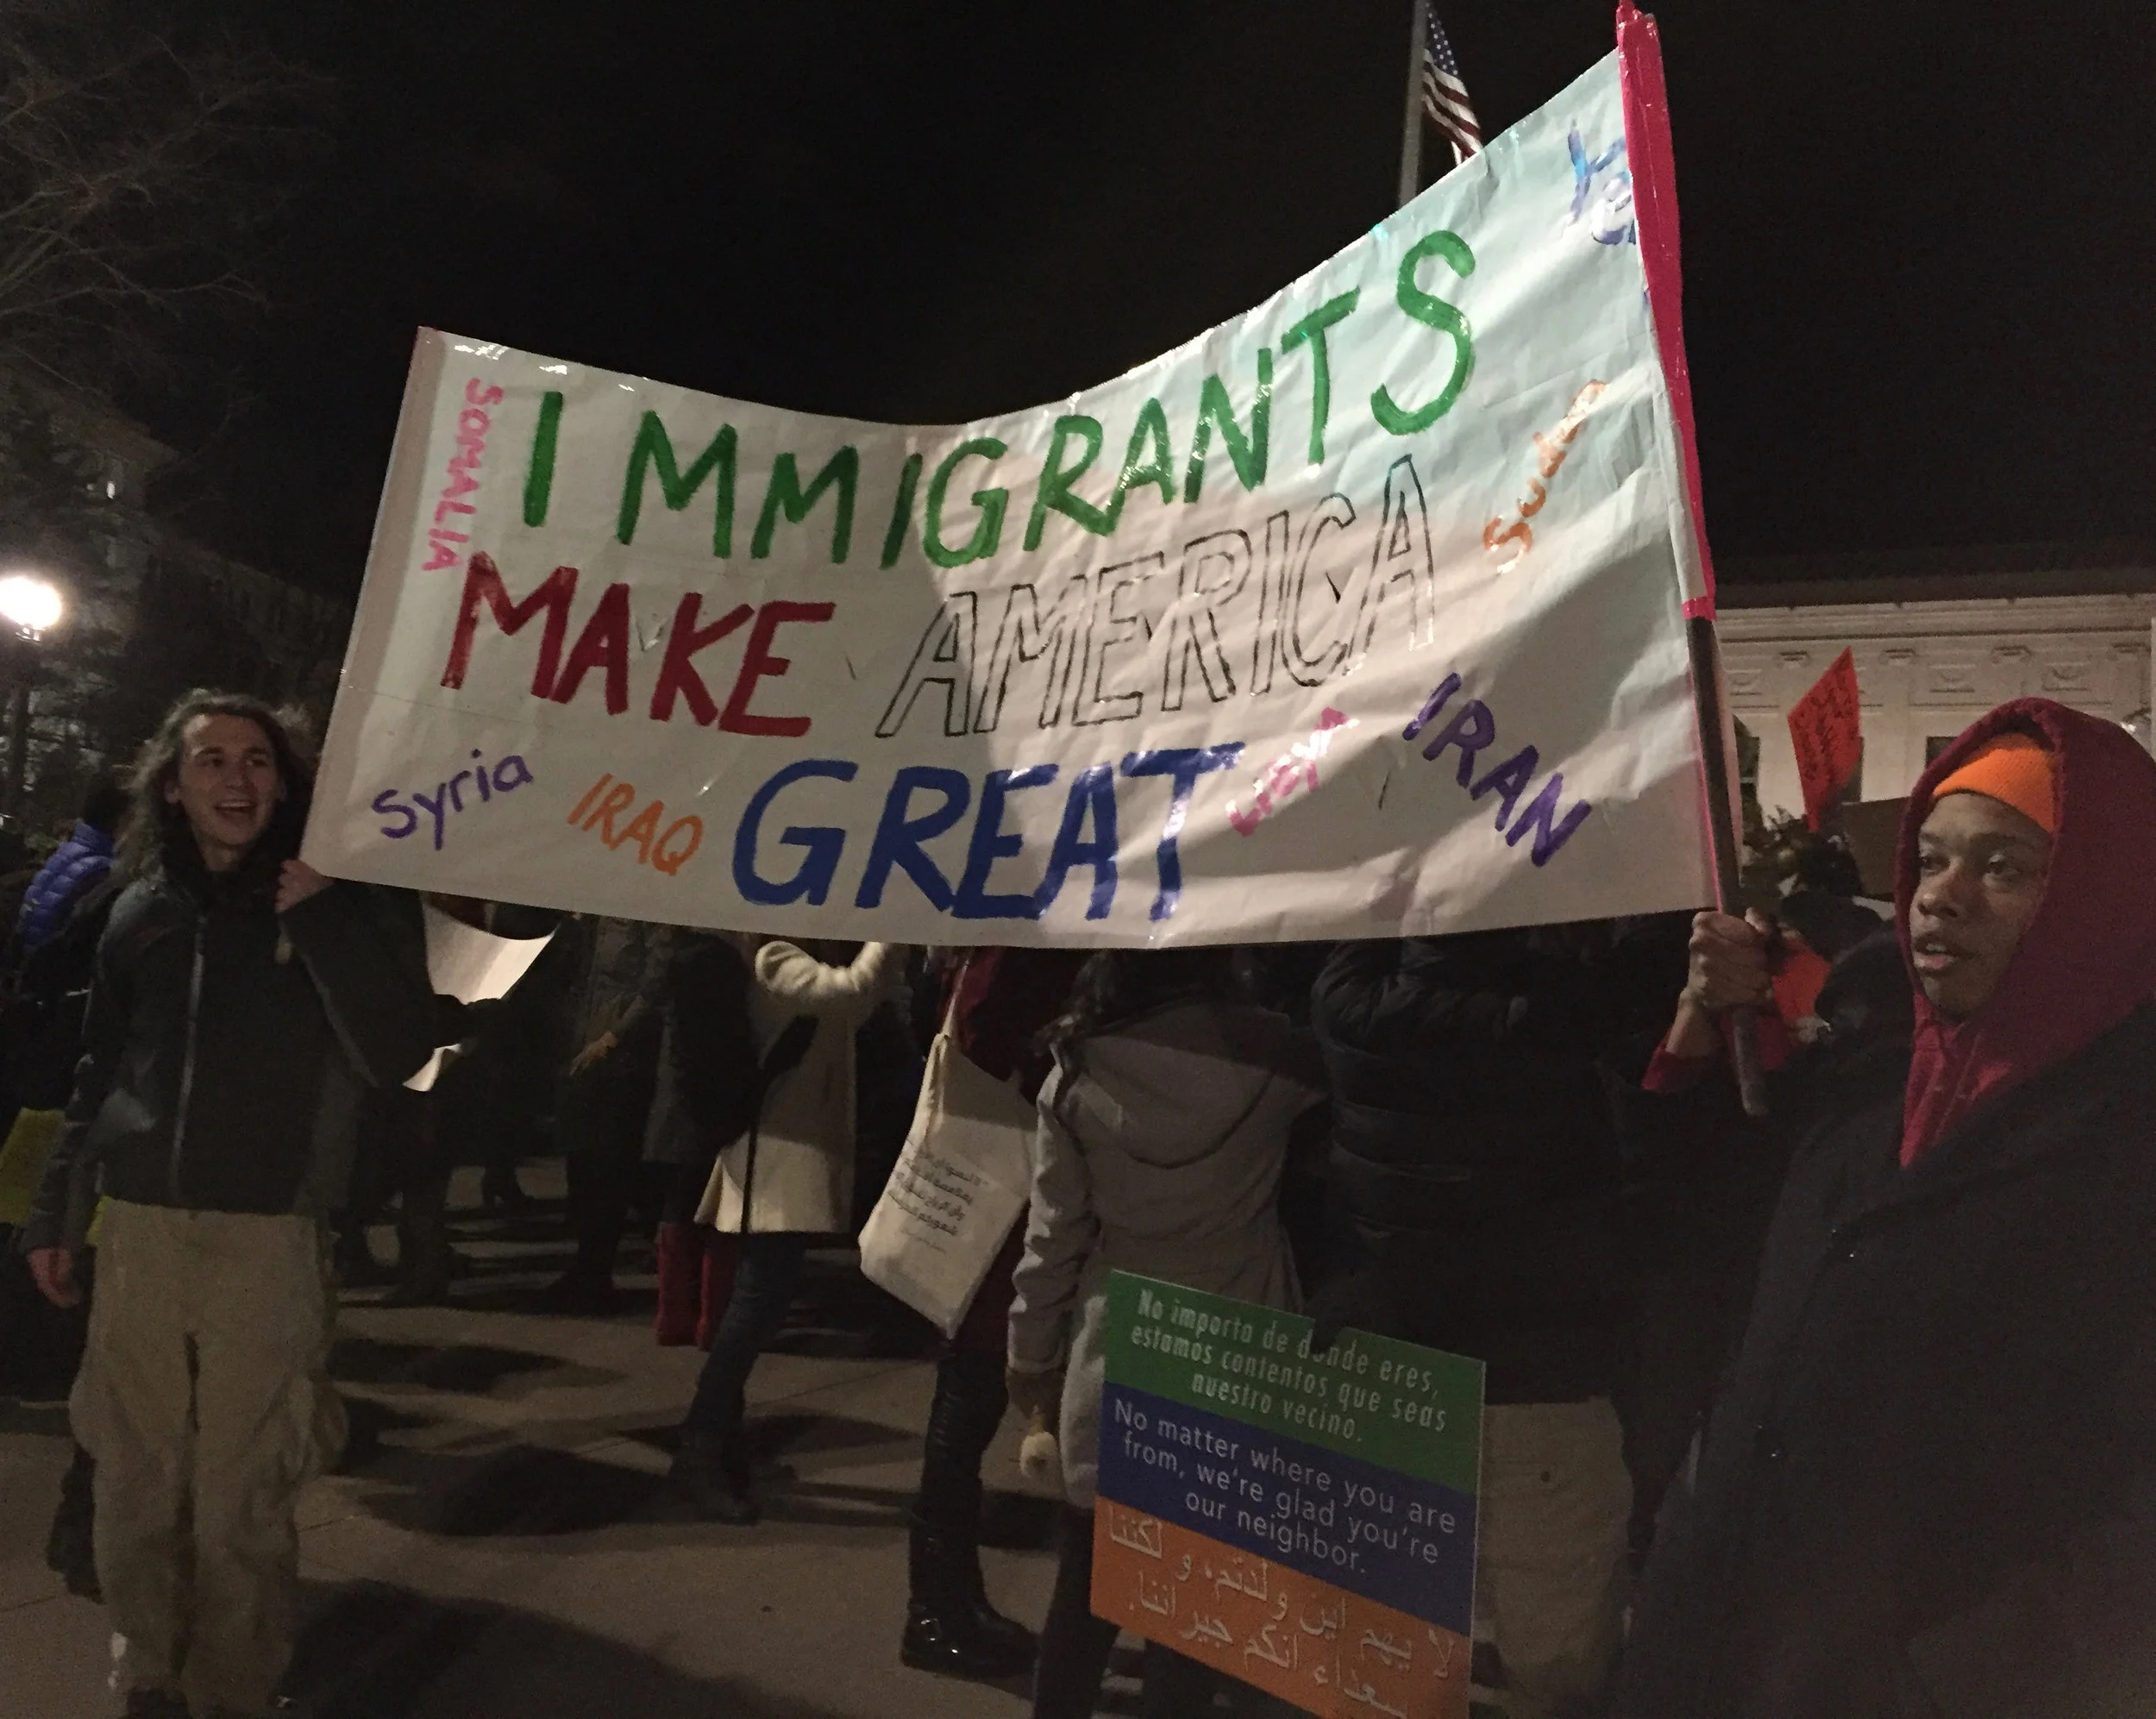 SOMALIA
IMMIGRANTS
Sudan
MAKE AMERICA
Syria
IRAQ
GREAT
IRAN
No importa de donde eres,
estamos contentos que seas
nuestro vecino.
No matter where you are
from, we're glad you're
our neighbor.
لا يهم اين ولدتم، و لكننا
سعداء انكم جيراننا.